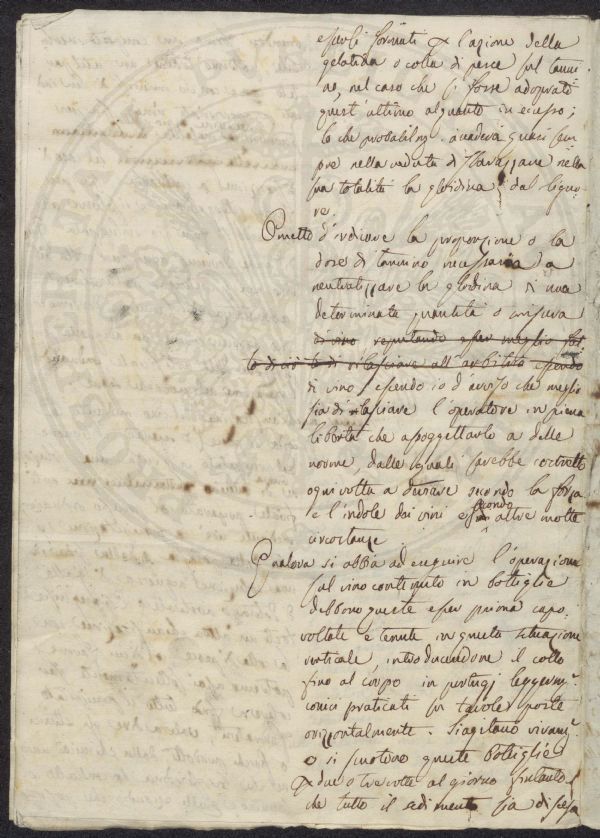 essuti formati per l'azione della
gelatina o colla di pesce sul tanni-
no, nel caso che si fosse adoprato
quest'ultimo alquanto in eccesso;
lo che probabilm.e accadeva quasi sem
pre nella veduta di sbarazzare nella
sua totalità la gliadina dal liquo-
re.
Ometto d'indicare la proporzione o la
dose di tannino necessaria a
neutralizzare la gliadina di una
determinata quantità o misura
di vino reputando esser meglio
di rilasciare all'arbitrio essendo
di vino essendo io d'avviso che meglio
sia di rilasciare l'operatore in piena
libertà che assoggettarlo a delle
norme, dalle quali sarebbe costretto
ogni volta a deviare secondo la forza
e l'indole dei vini e secondo altre molte
circostanze.
Qualora si abbia ad eseguire l'operazione
sul vino contenuto in bottiglie
debbono queste esser prima capo-
voltate e tenute in questa situazione
verticale, introducendone il collo
fino al corpo in pertugi leggerm.e
conici praticati su tavole poste
orizzontalmente. Si agitano vivam.e
o si scuotono queste bottiglie
per due o tre volte al giorno fintanto
che tutto il sedimento sia disceso